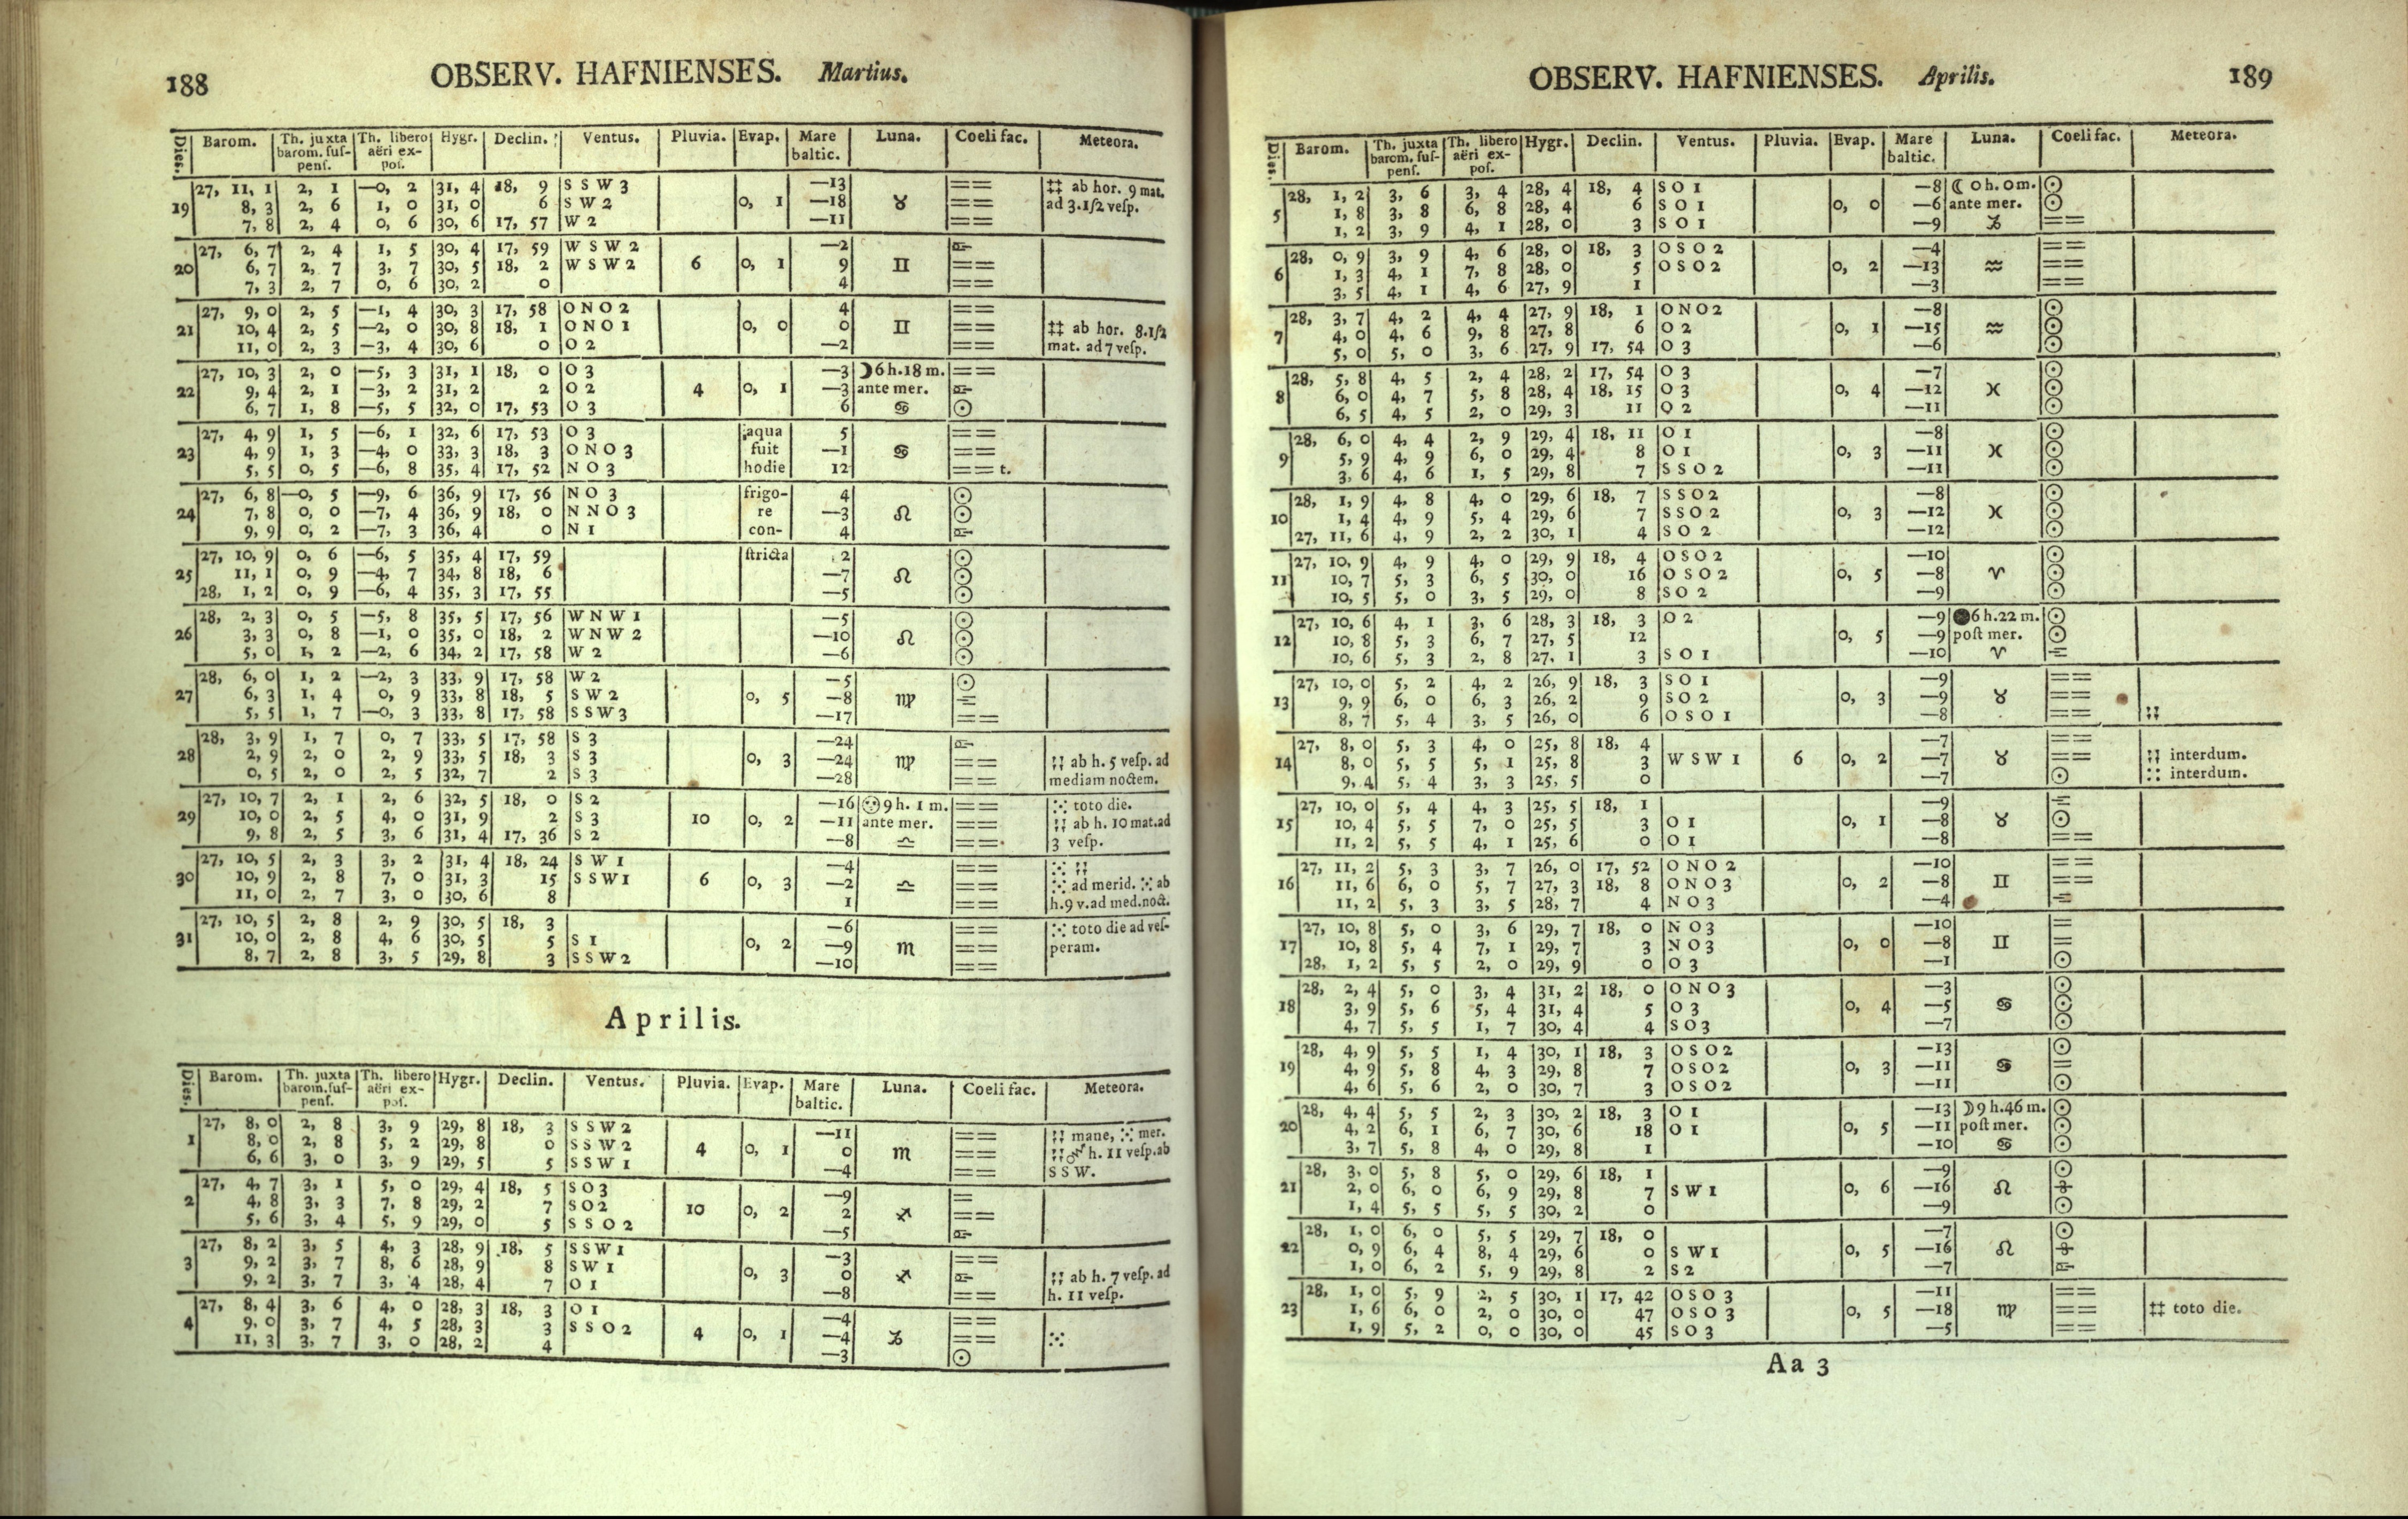 188 OBSERV. HAFNIENSES. Martius.
Dies. | Barom. | Th. juxta barom. ſuſ- penſ. | Th. libero aëri ex- poſ. | Hygr. | Declin. | Ventus. | Pluvia. | Evap. | Mare baltic. | Luna. | Coeli fac. | Meteora.
27, 11, 1 | 2, 1 | —0, 2 | 31, 4 | 18, 9 | S S W 3 | | | —13 | | == | ‡‡ ab hor. 9 mat.
19 | 8, 3 | 2, 6 | 1, 0 | 31, 0 | 6 | S W 2 | | 0, 1 | —18 | ♉ | == | ad 3.1/2 veſp.
7, 8 | 2, 4 | 0, 6 | 30, 6 | 17, 57 | W 2 | | | —11 | | ==
27, 6, 7 | 2, 4 | 1, 5 | 30, 4 | 17, 59 | W S W 2 | | | —2
20 | 6, 7 | 2, 7 | 3, 7 | 30, 5 | 18, 2 | W S W 2 | 6 | 0, 1 | 9 | ♊ | ==
7, 3 | 2, 7 | 0, 6 | 30, 2 | 0 | | | | 4 | | ==
27, 9, 0 | 2, 5 | —1, 4 | 30, 3 | 17, 58 | O N O 2 | | | 4 | | ==
21 | 10, 4 | 2, 5 | —2, 0 | 30, 8 | 18, 1 | O N O 1 | | 0, 0 | 0 | ♊ | == | ‡‡ ab hor. 8.1/2
11, 0 | 2, 3 | —3, 4 | 30, 6 | 0 | O 2 | | | —2 | | == | mat. ad 7 veſp.
27, 10, 3 | 2, 0 | —5, 3 | 31, 1 | 18, 0 | O 3 | | | —3 | ☽6 h. 18 m. | ==
22 | 9, 4 | 2, 1 | —3, 2 | 31, 2 | 2 | O 2 | 4 | 0, 1 | —3 | ante mer.
6, 7 | 1, 8 | —5, 5 | 32, 0 | 17, 53 | O 3 | | | 6 | ♋ | ☉
27, 4, 9 | 1, 5 | —6, 1 | 32, 6 | 17, 53 | O 3 | | aqua | 5 | | ==
23 | 4, 9 | 1, 3 | —4, 0 | 33, 3 | 18, 3 | O N O 3 | | fuit | —1 | ♋ | ==
5, 5 | 0, 5 | —6, 8 | 35, 4 | 17, 52 | N O 3 | | hodie | 12 | | == t.
27, 6, 8 | —0, 5 | —9, 6 | 36, 9 | 17, 56 | N O 3 | | frigo- | 4 | | ☉
24 | 7, 8 | 0, 0 | —7, 4 | 36, 9 | 18, 0 | N N O 3 | | re | —3 | ♌ | ☉
9, 9 | 0, 2 | —7, 3 | 36, 4 | 0 | N 1 | | con- | 4
27, 10, 9 | 0, 6 | —6, 5 | 35, 4 | 17, 59 | | | ſtricta | 2 | | ☉
25 | 11, 1 | 0, 9 | —4, 7 | 34, 8 | 18, 6 | | | | —7 | ♌ | ☉
28, 1, 2 | 0, 9 | —6, 4 | 35, 3 | 17, 55 | | | | —5 | | ☉
28, 2, 3 | 0, 5 | —5, 8 | 35, 5 | 17, 56 | W N W 1 | | | —5 | | ☉
26 | 3, 3 | 0, 8 | —1, 0 | 35, 0 | 18, 2 | W N W 2 | | | —10 | ♌ | ☉
5, 0 | 1, 2 | —2, 6 | 34, 2 | 17, 58 | W 2 | | | —6 | | ☉
28, 6, 0 | 1, 2 | —2, 3 | 33, 9 | 17, 58 | W 2 | | | —5 | | ☉
27 | 6, 3 | 1, 4 | 0, 9 | 33, 8 | 18, 5 | S W 2 | | 0, 5 | —8 | ♍
5, 5 | 1, 7 | —0, 3 | 33, 8 | 17, 58 | S S W 3 | | | —17 | | ==
28, 3, 9 | 1, 7 | 0, 7 | 33, 5 | 17, 58 | S 3 | | | —24
28 | 2, 9 | 2, 0 | 2, 9 | 33, 5 | 18, 3 | S 3 | | 0, 3 | —24 | ♍ | == | ab h. 5 veſp. ad
0, 5 | 2, 0 | 2, 5 | 32, 7 | 2 | S 3 | | | —28 | | == | mediam noctem.
27, 10, 7 | 2, 1 | 2, 6 | 32, 5 | 18, 0 | S 2 | | | —16 | 9 h. 1 m. | == | toto die.
29 | 10, 0 | 2, 5 | 4, 0 | 31, 9 | 2 | S 3 | 10 | 0, 2 | —11 | ante mer. | == | ab h. 10 mat.ad
9, 8 | 2, 5 | 3, 6 | 31, 4 | 17, 36 | S 2 | | | —8 | ♎ | == | 3 veſp.
27, 10, 5 | 2, 3 | 3, 2 | 31, 4 | 18, 24 | S W 1 | | | —4 | | ==
30 | 10, 9 | 2, 8 | 7, 0 | 31, 3 | 15 | S S W 1 | 6 | 0, 3 | —2 | ♎ | == | ad merid. ab
11, 0 | 2, 7 | 3, 0 | 30, 6 | 8 | | | | 1 | | == | h.9 v.ad med.noct.
27, 10, 5 | 2, 8 | 2, 9 | 30, 5 | 18, 3 | | | | —6 | | == | toto die ad veſ-
31 | 10, 0 | 2, 8 | 4, 6 | 30, 5 | 5 | S 1 | | 0, 2 | —9 | ♏ | == | peram.
8, 7 | 2, 8 | 3, 5 | 29, 8 | 3 | S S W 2 | | | —10 | | ==
Aprilis.
Dies. | Barom. | Th. juxta barom. ſuſ- penſ. | Th. libero aëri ex- poſ. | Hygr. | Declin. | Ventus. | Pluvia. | Evap. | Mare baltic. | Luna. | Coeli fac. | Meteora.
27, 8, 0 | 2, 8 | 3, 9 | 29, 8 | 18, 3 | S S W 2 | | | —11 | | == | mane, mer.
1 | 8, 0 | 2, 8 | 5, 2 | 29, 8 | 0 | S S W 2 | 4 | 0, 1 | 0 | ♏ | == | h. 11 veſp.ab
6, 6 | 3, 0 | 3, 9 | 29, 5 | 5 | S S W 1 | | | —4 | | == | S S W.
27, 4, 7 | 3, 1 | 5, 0 | 29, 4 | 18, 5 | S O 3 | | | —9 | | =
2 | 4, 8 | 3, 3 | 7, 8 | 29, 2 | 7 | S O 2 | 10 | 0, 2 | 2 | ♐ | ==
5, 6 | 3, 4 | 5, 9 | 29, 0 | 5 | S S O 2 | | | —5
27, 8, 2 | 3, 5 | 4, 3 | 28, 9 | 18, 5 | S S W 1 | | | —3 | | ==
3 | 9, 2 | 3, 7 | 8, 6 | 28, 9 | 8 | S W 1 | | 0, 3 | 0 | ♐ | | ab h. 7 veſp. ad
9, 2 | 3, 7 | 3, 4 | 28, 4 | 7 | O 1 | | | —8 | | == | h. 11 veſp.
27, 8, 4 | 3, 6 | 4, 0 | 28, 3 | 18, 3 | O 1 | | | —4 | | ==
4 | 9, 0 | 3, 7 | 4, 5 | 28, 3 | 3 | S S O 2 | 4 | 0, 1 | —4 | ♑ | ==
11, 3 | 3, 7 | 3, 0 | 28, 2 | 4 | | | | —3 | | ☉
OBSERV. HAFNIENSES. Aprilis. 189
Dies. | Barom. | Th. juxta barom. ſuſ- penſ. | Th. libero aëri ex- poſ. | Hygr. | Declin. | Ventus. | Pluvia. | Evap. | Mare baltic. | Luna. | Coeli fac. | Meteora.
28, 1, 2 | 3, 6 | 3, 4 | 28, 4 | 18, 4 | S O 1 | | | —8 | ☾ 0 h. 0 m. | ☉
5 | 1, 8 | 3, 8 | 6, 8 | 28, 4 | 6 | S O 1 | | 0, 0 | —6 | ante mer. | ☉
1, 2 | 3, 9 | 4, 1 | 28, 0 | 3 | S O 1 | | | —9 | ♑ | ==
28, 0, 9 | 3, 9 | 4, 6 | 28, 0 | 18, 3 | O S O 2 | | | —4 | | ==
6 | 1, 3 | 4, 1 | 7, 8 | 28, 0 | 5 | O S O 2 | | 0, 2 | —13 | ♒ | ==
3, 5 | 4, 1 | 4, 6 | 27, 9 | 1 | | | | —3 | | ==
28, 3, 7 | 4, 2 | 4, 4 | 27, 9 | 18, 1 | O N O 2 | | | —8 | | ☉
7 | 4, 0 | 4, 6 | 9, 8 | 27, 8 | 6 | O 2 | | 0, 1 | —15 | ♒ | ☉
5, 0 | 5, 0 | 3, 6 | 27, 9 | 17, 54 | O 3 | | | —6 | | ☉
28, 5, 8 | 4, 5 | 2, 4 | 28, 2 | 17, 54 | O 3 | | | —7 | | ☉
8 | 6, 0 | 4, 7 | 5, 8 | 28, 4 | 18, 15 | O 3 | | 0, 4 | —12 | ♓ | ☉
6, 5 | 4, 5 | 2, 0 | 29, 3 | 11 | O 2 | | | —11 | | ☉
28, 6, 0 | 4, 4 | 2, 9 | 29, 4 | 18, 11 | O 1 | | | —8 | | ☉
9 | 5, 9 | 4, 9 | 6, 0 | 29, 4 | 8 | O 1 | | 0, 3 | —11 | ♓ | ☉
3, 6 | 4, 6 | 1, 5 | 29, 8 | 7 | S S O 2 | | | —11 | | ☉
28, 1, 9 | 4, 8 | 4, 0 | 29, 6 | 18, 7 | S S O 2 | | | —8 | | ☉
10 | 1, 4 | 4, 9 | 5, 4 | 29, 6 | 7 | S S O 2 | | 0, 3 | —12 | ♓ | ☉
27, 11, 6 | 4, 9 | 2, 2 | 30, 1 | 4 | S O 2 | | | —12 | | ☉
27, 10, 9 | 4, 9 | 4, 0 | 29, 9 | 18, 4 | O S O 2 | | | —10 | | ☉
11 | 10, 7 | 5, 3 | 6, 5 | 30, 0 | 16 | O S O 2 | | 0, 5 | —8 | ♈ | ☉
10, 5 | 5, 0 | 3, 5 | 29, 0 | 8 | S O 2 | | | —9 | | ☉
27, 10, 6 | 4, 1 | 3, 6 | 28, 3 | 18, 3 | O 2 | | | —9 | ●6 h. 22 m. | ☉
12 | 10, 8 | 5, 3 | 6, 7 | 27, 5 | 12 | | | 0, 5 | —9 | poſt mer. | ☉
10, 6 | 5, 3 | 2, 8 | 27, 1 | 3 | S O 1 | | | —10 | ♈
27, 10, 0 | 5, 2 | 4, 2 | 26, 9 | 18, 3 | S O 1 | | | —9 | | ==
13 | 9, 9 | 6, 0 | 6, 3 | 26, 2 | 9 | S O 2 | | 0, 3 | —9 | ♉ | ==
8, 7 | 5, 4 | 3, 5 | 26, 0 | 6 | O S O 1 | | | —8 | | ==
27, 8, 0 | 5, 3 | 4, 0 | 25, 8 | 18, 4 | | | | —7 | | ==
14 | 8, 0 | 5, 5 | 5, 1 | 25, 8 | 3 | W S W 1 | 6 | 0, 2 | —7 | ♉ | == | interdum.
9, 4 | 5, 4 | 3, 3 | 25, 5 | 0 | | | | —7 | | ☉ | :: interdum.
27, 10, 0 | 5, 4 | 4, 3 | 25, 5 | 18, 1 | | | | —9
15 | 10, 4 | 5, 5 | 7, 0 | 25, 5 | 3 | O 1 | | 0, 1 | —8 | ♉ | ☉
11, 2 | 5, 5 | 4, 1 | 25, 6 | 0 | O 1 | | | —8 | | ==
27, 11, 2 | 5, 3 | 3, 7 | 26, 0 | 17, 52 | O N O 2 | | | —10 | | ==
16 | 11, 6 | 6, 0 | 5, 7 | 27, 3 | 18, 8 | O N O 3 | | 0, 2 | —8 | ♊ | ==
11, 2 | 5, 3 | 3, 5 | 28, 7 | 4 | N O 3 | | | —4
27, 10, 8 | 5, 0 | 3, 6 | 29, 7 | 18, 0 | N O 3 | | | —10 | | =
17 | 10, 8 | 5, 4 | 7, 1 | 29, 7 | 3 | N O 3 | | 0, 0 | —8 | ♊ | =
28, 1, 2 | 5, 5 | 2, 0 | 29, 9 | 0 | O 3 | | | —1 | | ☉
28, 2, 4 | 5, 0 | 3, 4 | 31, 2 | 18, 0 | O N O 3 | | | —3 | | ☉
18 | 3, 9 | 5, 6 | 5, 4 | 31, 4 | 5 | O 3 | | 0, 4 | —5 | ♋ | ☉
4, 7 | 5, 5 | 1, 7 | 30, 4 | 4 | S O 3 | | | —7 | | ☉
28, 4, 9 | 5, 5 | 1, 4 | 30, 1 | 18, 3 | O S O 2 | | | —13 | | ☉
19 | 4, 9 | 5, 8 | 4, 3 | 29, 8 | 7 | O S O 2 | | 0, 3 | —11 | ♋ | =
4, 6 | 5, 6 | 2, 0 | 30, 7 | 3 | O S O 2 | | | —11 | | ☉
28, 4, 4 | 5, 5 | 2, 3 | 30, 2 | 18, 3 | O 1 | | | —13 | ☽9 h. 46 m. | ☉
20 | 4, 2 | 6, 1 | 6, 7 | 30, 6 | 18 | O 1 | | 0, 5 | —11 | poſt mer. | ☉
3, 7 | 5, 8 | 4, 0 | 29, 8 | 1 | | | | —10 | ♋ | ☉
28, 3, 0 | 5, 8 | 5, 0 | 29, 6 | 18, 1 | | | | —9 | | ☉
21 | 2, 0 | 6, 0 | 6, 9 | 29, 8 | 7 | S W 1 | | 0, 6 | —16 | ♌
1, 4 | 5, 5 | 5, 5 | 30, 2 | 0 | | | | —9 | | ☉
28, 1, 0 | 6, 0 | 5, 5 | 29, 7 | 18, 0 | | | | —7 | | ☉
22 | 0, 9 | 6, 4 | 8, 4 | 29, 6 | 0 | S W 1 | | 0, 5 | —16 | ♌
1, 0 | 6, 2 | 5, 9 | 29, 8 | 2 | S 2 | | | —7
28, 1, 0 | 5, 9 | 2, 5 | 30, 1 | 17, 42 | O S O 3 | | | —11 | | ==
23 | 1, 6 | 6, 0 | 2, 0 | 30, 0 | 47 | O S O 3 | | 0, 5 | —18 | ♍ | == | ‡‡ toto die.
1, 9 | 5, 2 | 0, 0 | 30, 0 | 45 | S O 3 | | | —5 | | ==
Aa 3